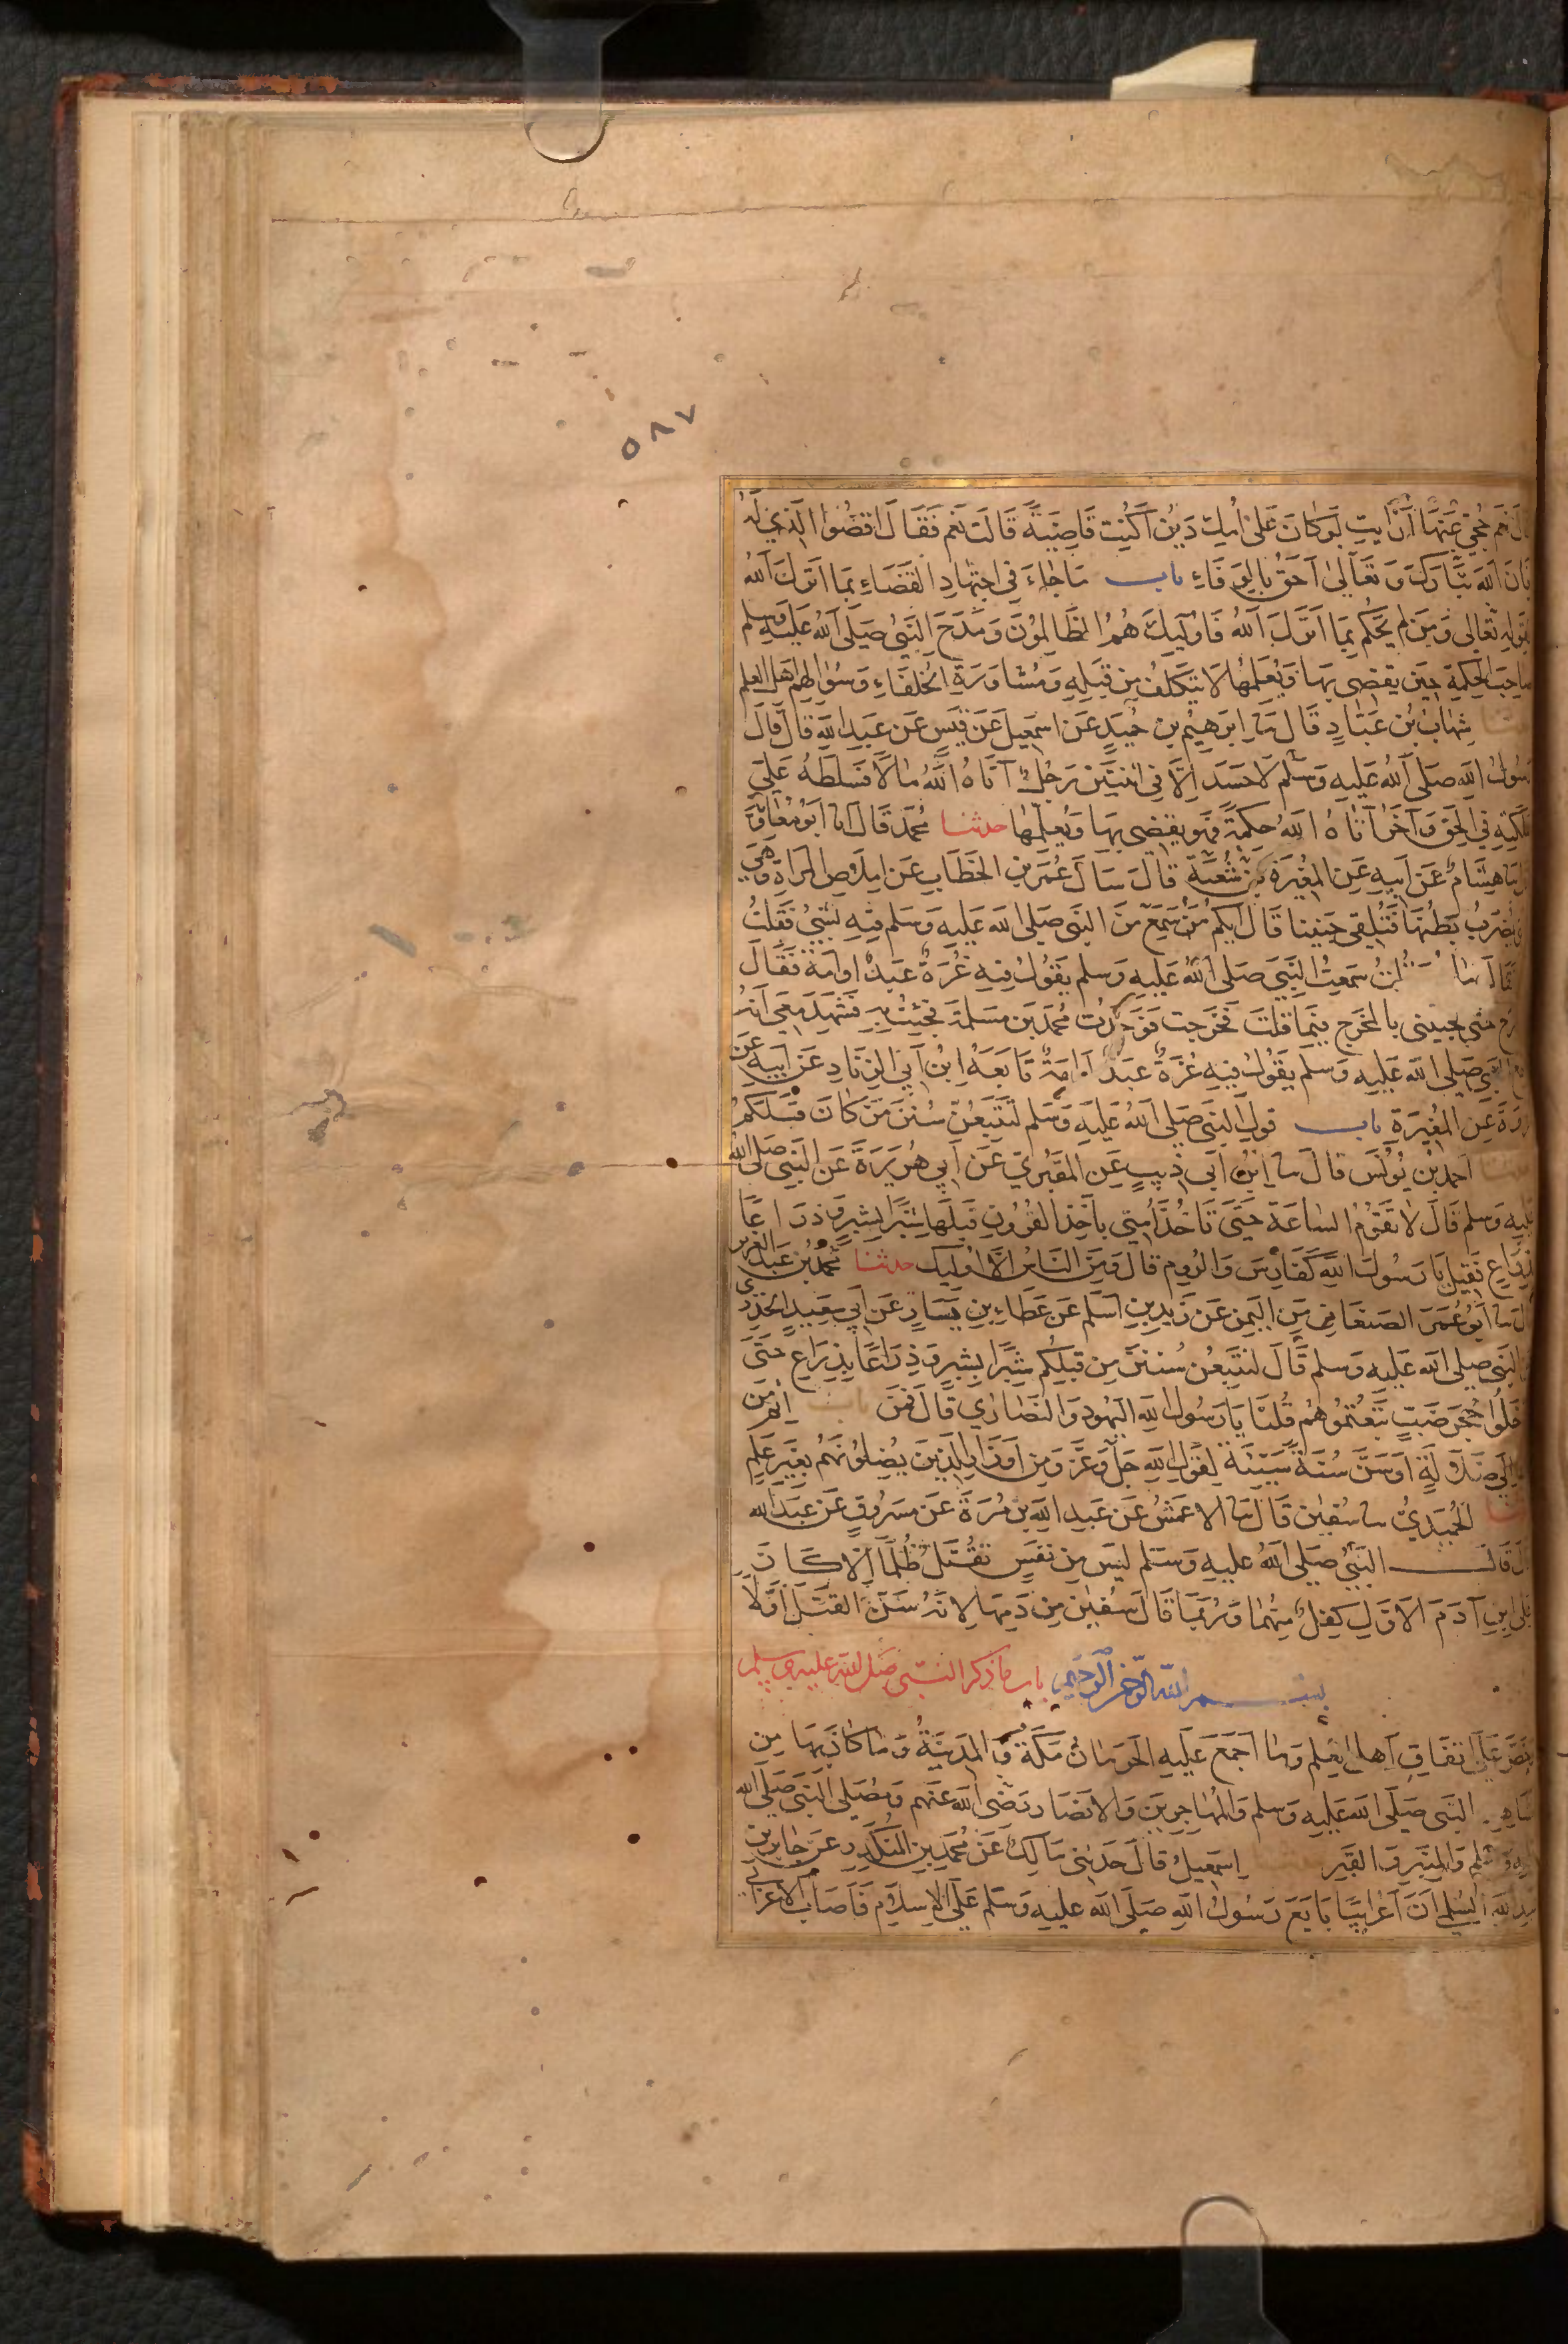 ٥٨٧
قال نعم حجي عنها أرأيت لو كان على أمك دين أكنت قاضية قالت نعم فقال اقضوا الذي له
فإن الله تبارك وتعالى أحق بالوفاء باب ما جاء في اجتهاد القضاء بما أنزل الله
لقوله تعالى ومن لم يحكم بما أنزل الله فأوليك هم الظالمون ومدح النبي صلى الله عليه وسلم
صاحب الحكمة حين يقضي بها ويعلمها لا يتكلف من قبله ومشاورة الخلفاء وسؤالهم أهل العلم
حدثنا شهاب بن عباد قال ثنا إبرهيم بن حميد عن اسمعيل عن قيس عن عبد الله قال قال
رسول الله صلى الله عليه وسلم لا حسد إلا في اثنتين رجل آتاه الله مالا فسلطه على
هلكته في الحق وآخر آتاه الله حكمة فهو يقضي بها ويعلمها حدثنا محمد قال انا أبو معاوية
ثنا هشام عن أبيه عن المغيرة بن شعبة قال سأل عمر بن الخطاب عن املاص المراة وهي
يضرب بطنها فتلقي جنينا قال أيكم من سمع من النبي صلى الله عليه وسلم فيه شيئ فقلت
فقال ما قلت سمعت النبي صلى الله عليه وسلم يقول فيه غرة عبد او امة فقال
حتى تجيئني بالمخرج فيما قلت فخرجت فوجدت محمد بن مسلمة فجئت به فشهد معي انه
سمع النبي صلى الله عليه وسلم يقول فيه غرة عبد او امة تابعه ابن أبي الزناد عن أبيه عن
عروة عن المغيرة باب قول النبي صلى الله عليه وسلم لتتبعن سنن من كان قبلكم
حدثنا احمد بن يونس قال ثنا ابن ابي ذيب عن المقبري عن أبي هريرة عن النبي صلى الله
عليه وسلم قال لا تقوم الساعة حتى تاخذ أمتي بأخذ القرون قبلها شبرا بشبر وذراعا
بذراع فقيل يا رسول الله كفارس والروم قال ومن الناس إلا اوليك حدثنا محمد بن عبد العزيز
قال ثنا أبو عمر الصنعاني من اليمن عن زيد بن اسلم عن عطاء بن يسار عن أبي سعيد الخدري
عن النبي صلى الله عليه وسلم قال لتتبعن سنن من قبلكم شبرا بشبر وذراعا بذراع حتى
دخلوا جحر ضب تبعتموهم قلنا يا رسول الله اليهود والنصارى قال فمن باب اثم من
دعا إلى ضلالة أو سن سنة سيئة لقول الله جل وعز ومن أوزار الذين يضلونهم بغير علم
حدثنا الحميدي ثنا سفين قال ثنا الاعمش عن عبد الله بن مرة عن مسروق عن عبد الله
قال قال النبي صلى الله عليه وسلم ليس من نفس تقتل ظلما إلا كان
على ابن آدم الاول كفل منها وربما قال سفين من دمها لانه سن القتل أولا
بسم الله الرحمن الرحيم باب ما ذكر النبي صلى الله عليه وسلم
وحض على اتفاق أهل العلم وما اجمع عليه الحرمان مكة والمدينة وما كان بها من
مشاهد النبي صلى الله عليه وسلم والمهاجرين والانصار رضي الله عنهم ومصلى النبي صلى الله
عليه وسلم والمنبر والقبر اسمعيل قال حدثني مالك عن محمد بن المنكدر عن جابر بن
عبد الله السلمي أن أعرابيا بايع رسول الله صلى الله عليه وسلم على الإسلام فأصاب الاعرابي